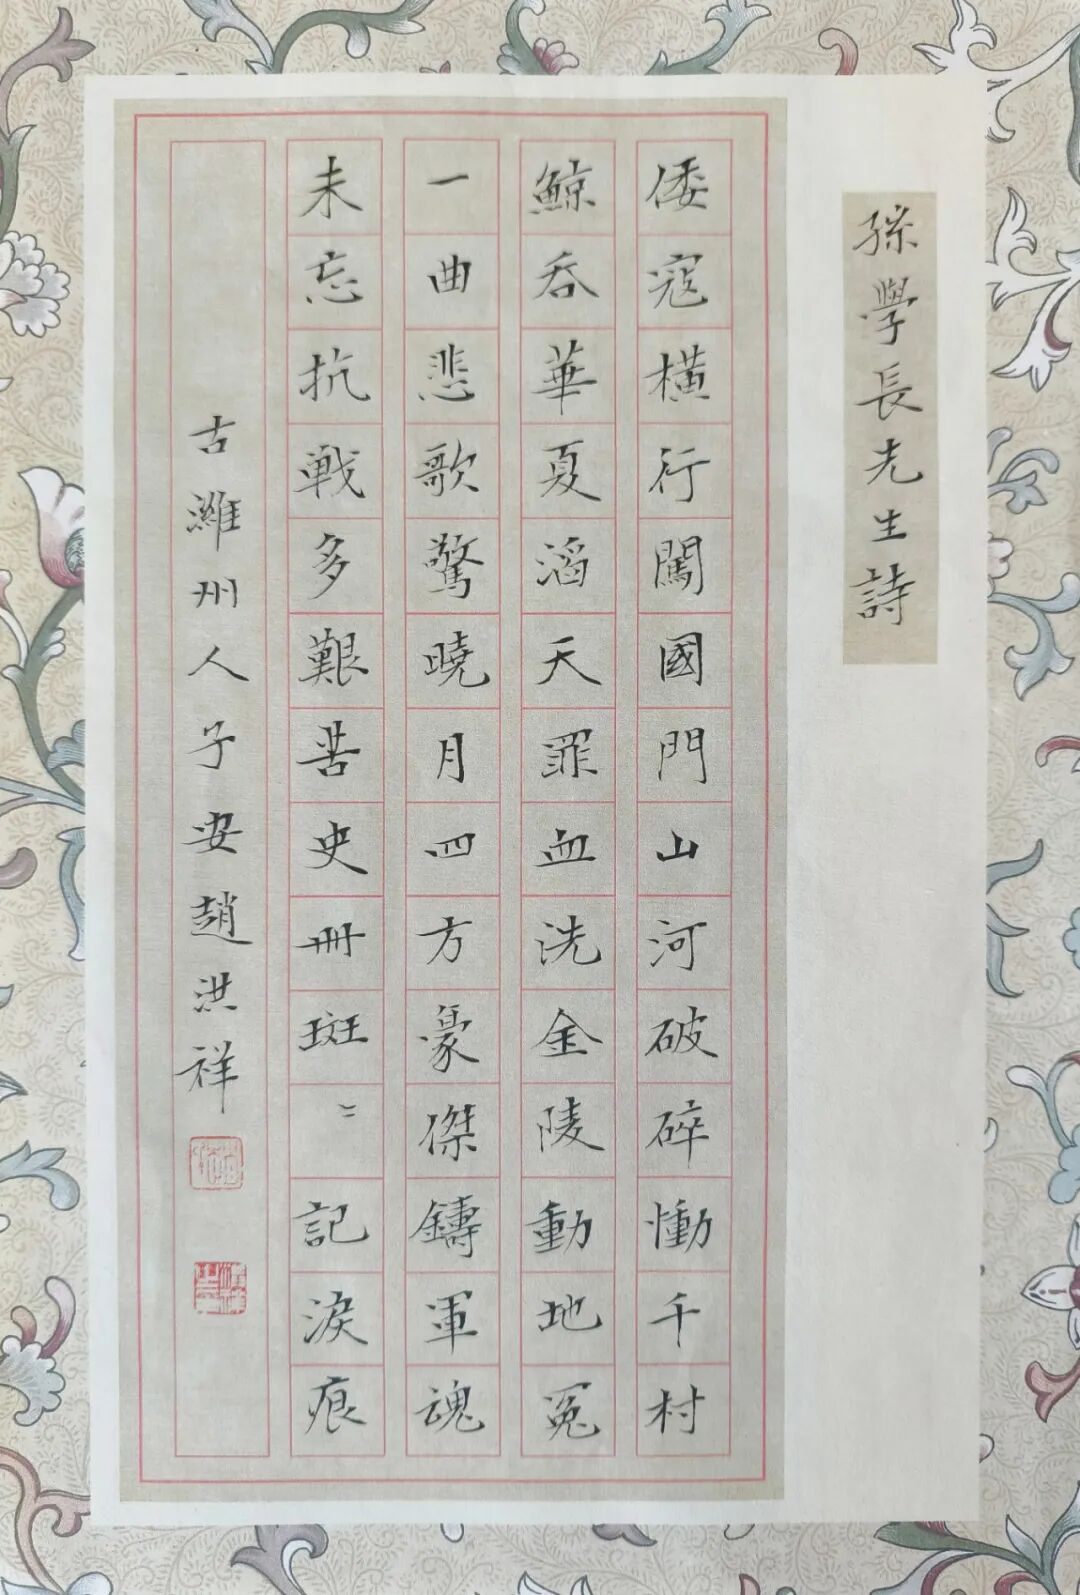 孫學長先生詩
倭寇橫行闖國門山河破碎慟千村
鯨吞華夏滔天罪血洗金陵動地冤
一曲悲歌驚曉月四方豪傑鑄軍魂
未忘抗戰多艱苦史冊斑〻記淚痕
古濰州人子安趙洪祥